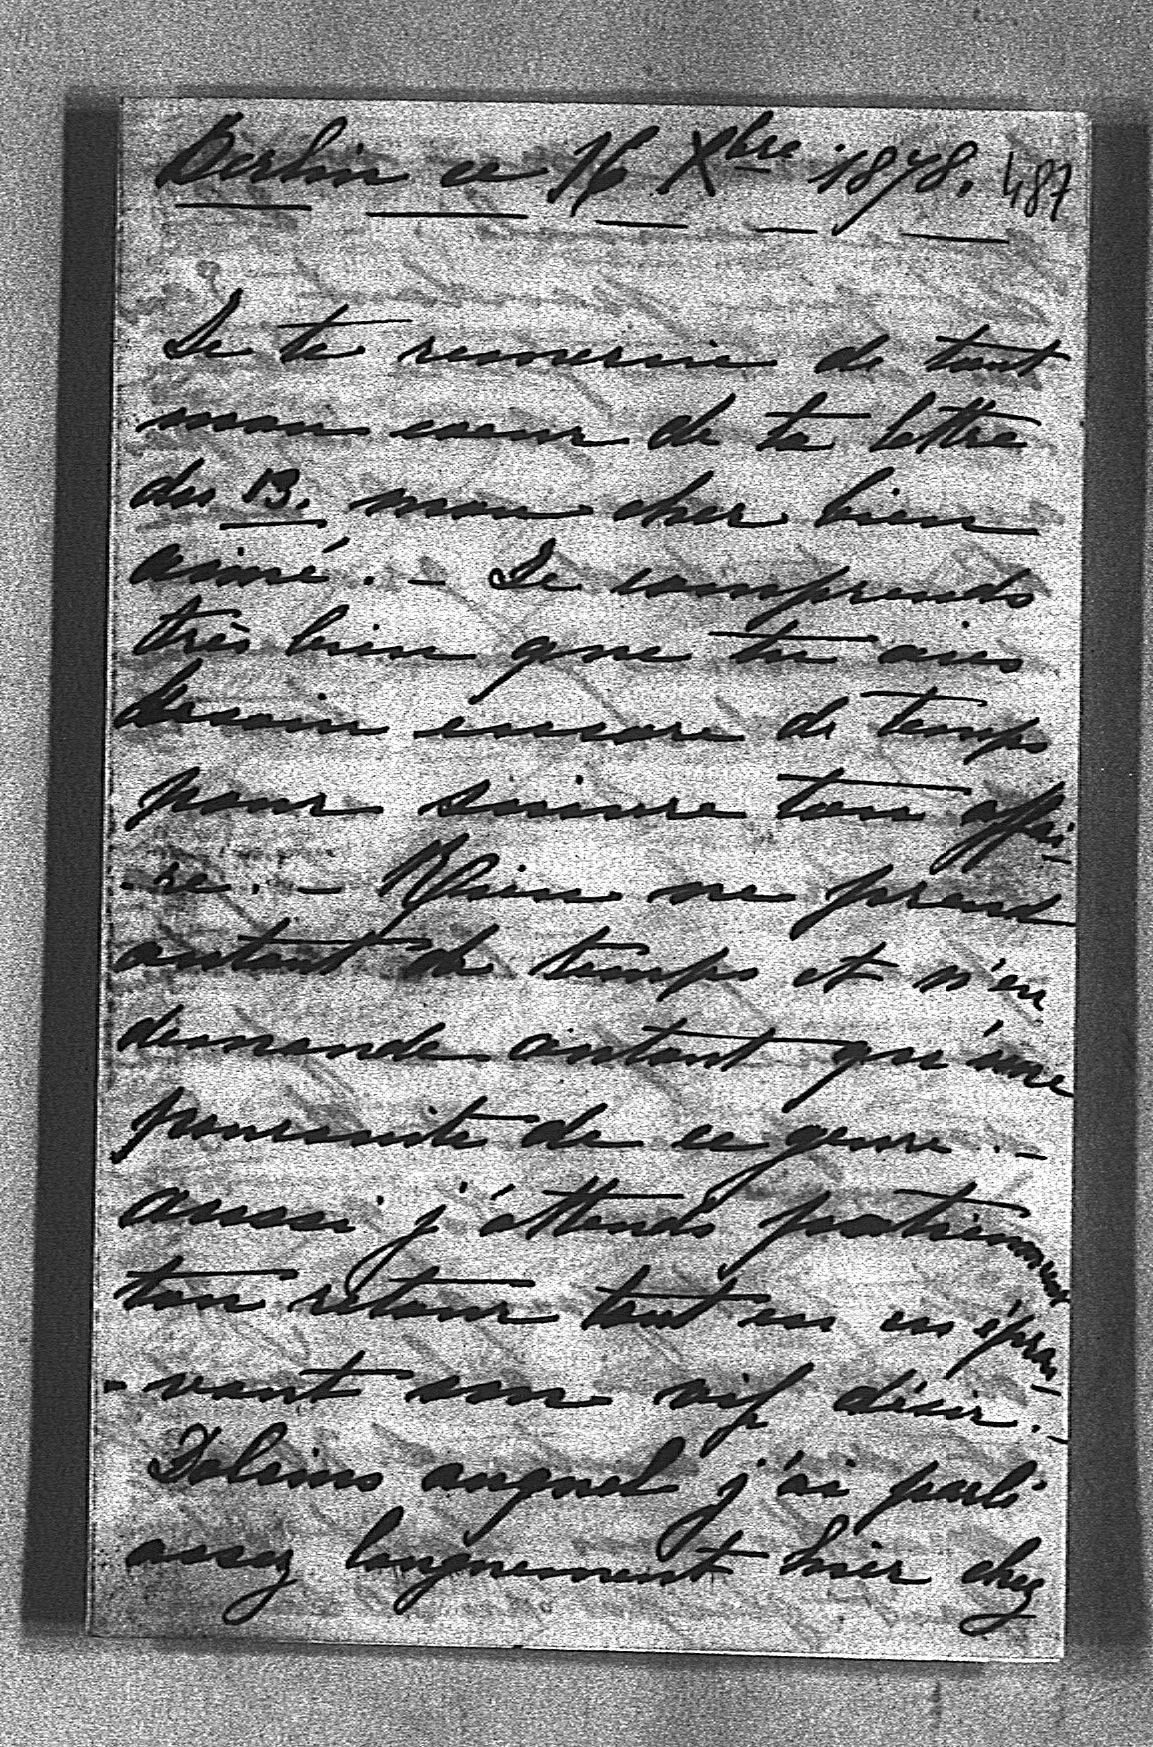 Berlin ce 16 Xbre 1878. 487
Je te remercie de tout
mon coeur de ta lettre
du 13. mon cher bien
aimé. - Je comprends
très bien que tu aies
besoin encore de temps
pour suivre ton affai-
-re. - Rien ne prend
autant de temps et n'en
demande autant qu'une
poursuite de ce genre. -
aussi j'attends patiemment
ton retour tout en en éprou-
-vant un vif désir. -
Dolsins auquel j'ai parlé
assez longuement hier chez